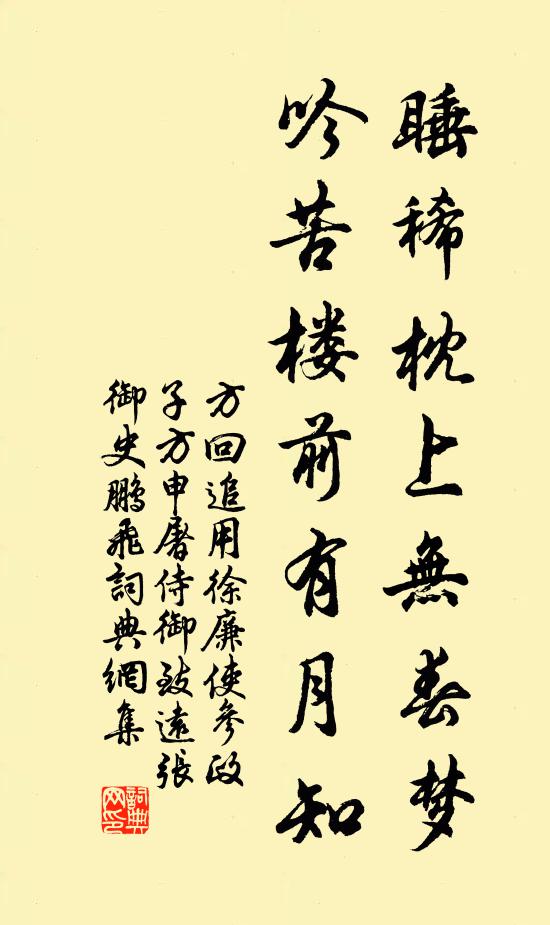 睡稀枕上無春梦
吟苦楼前有月知
方回追用徐廉使參政
子方申屠侍御致遠張
御史鹏飛詞典網集
詞典网印